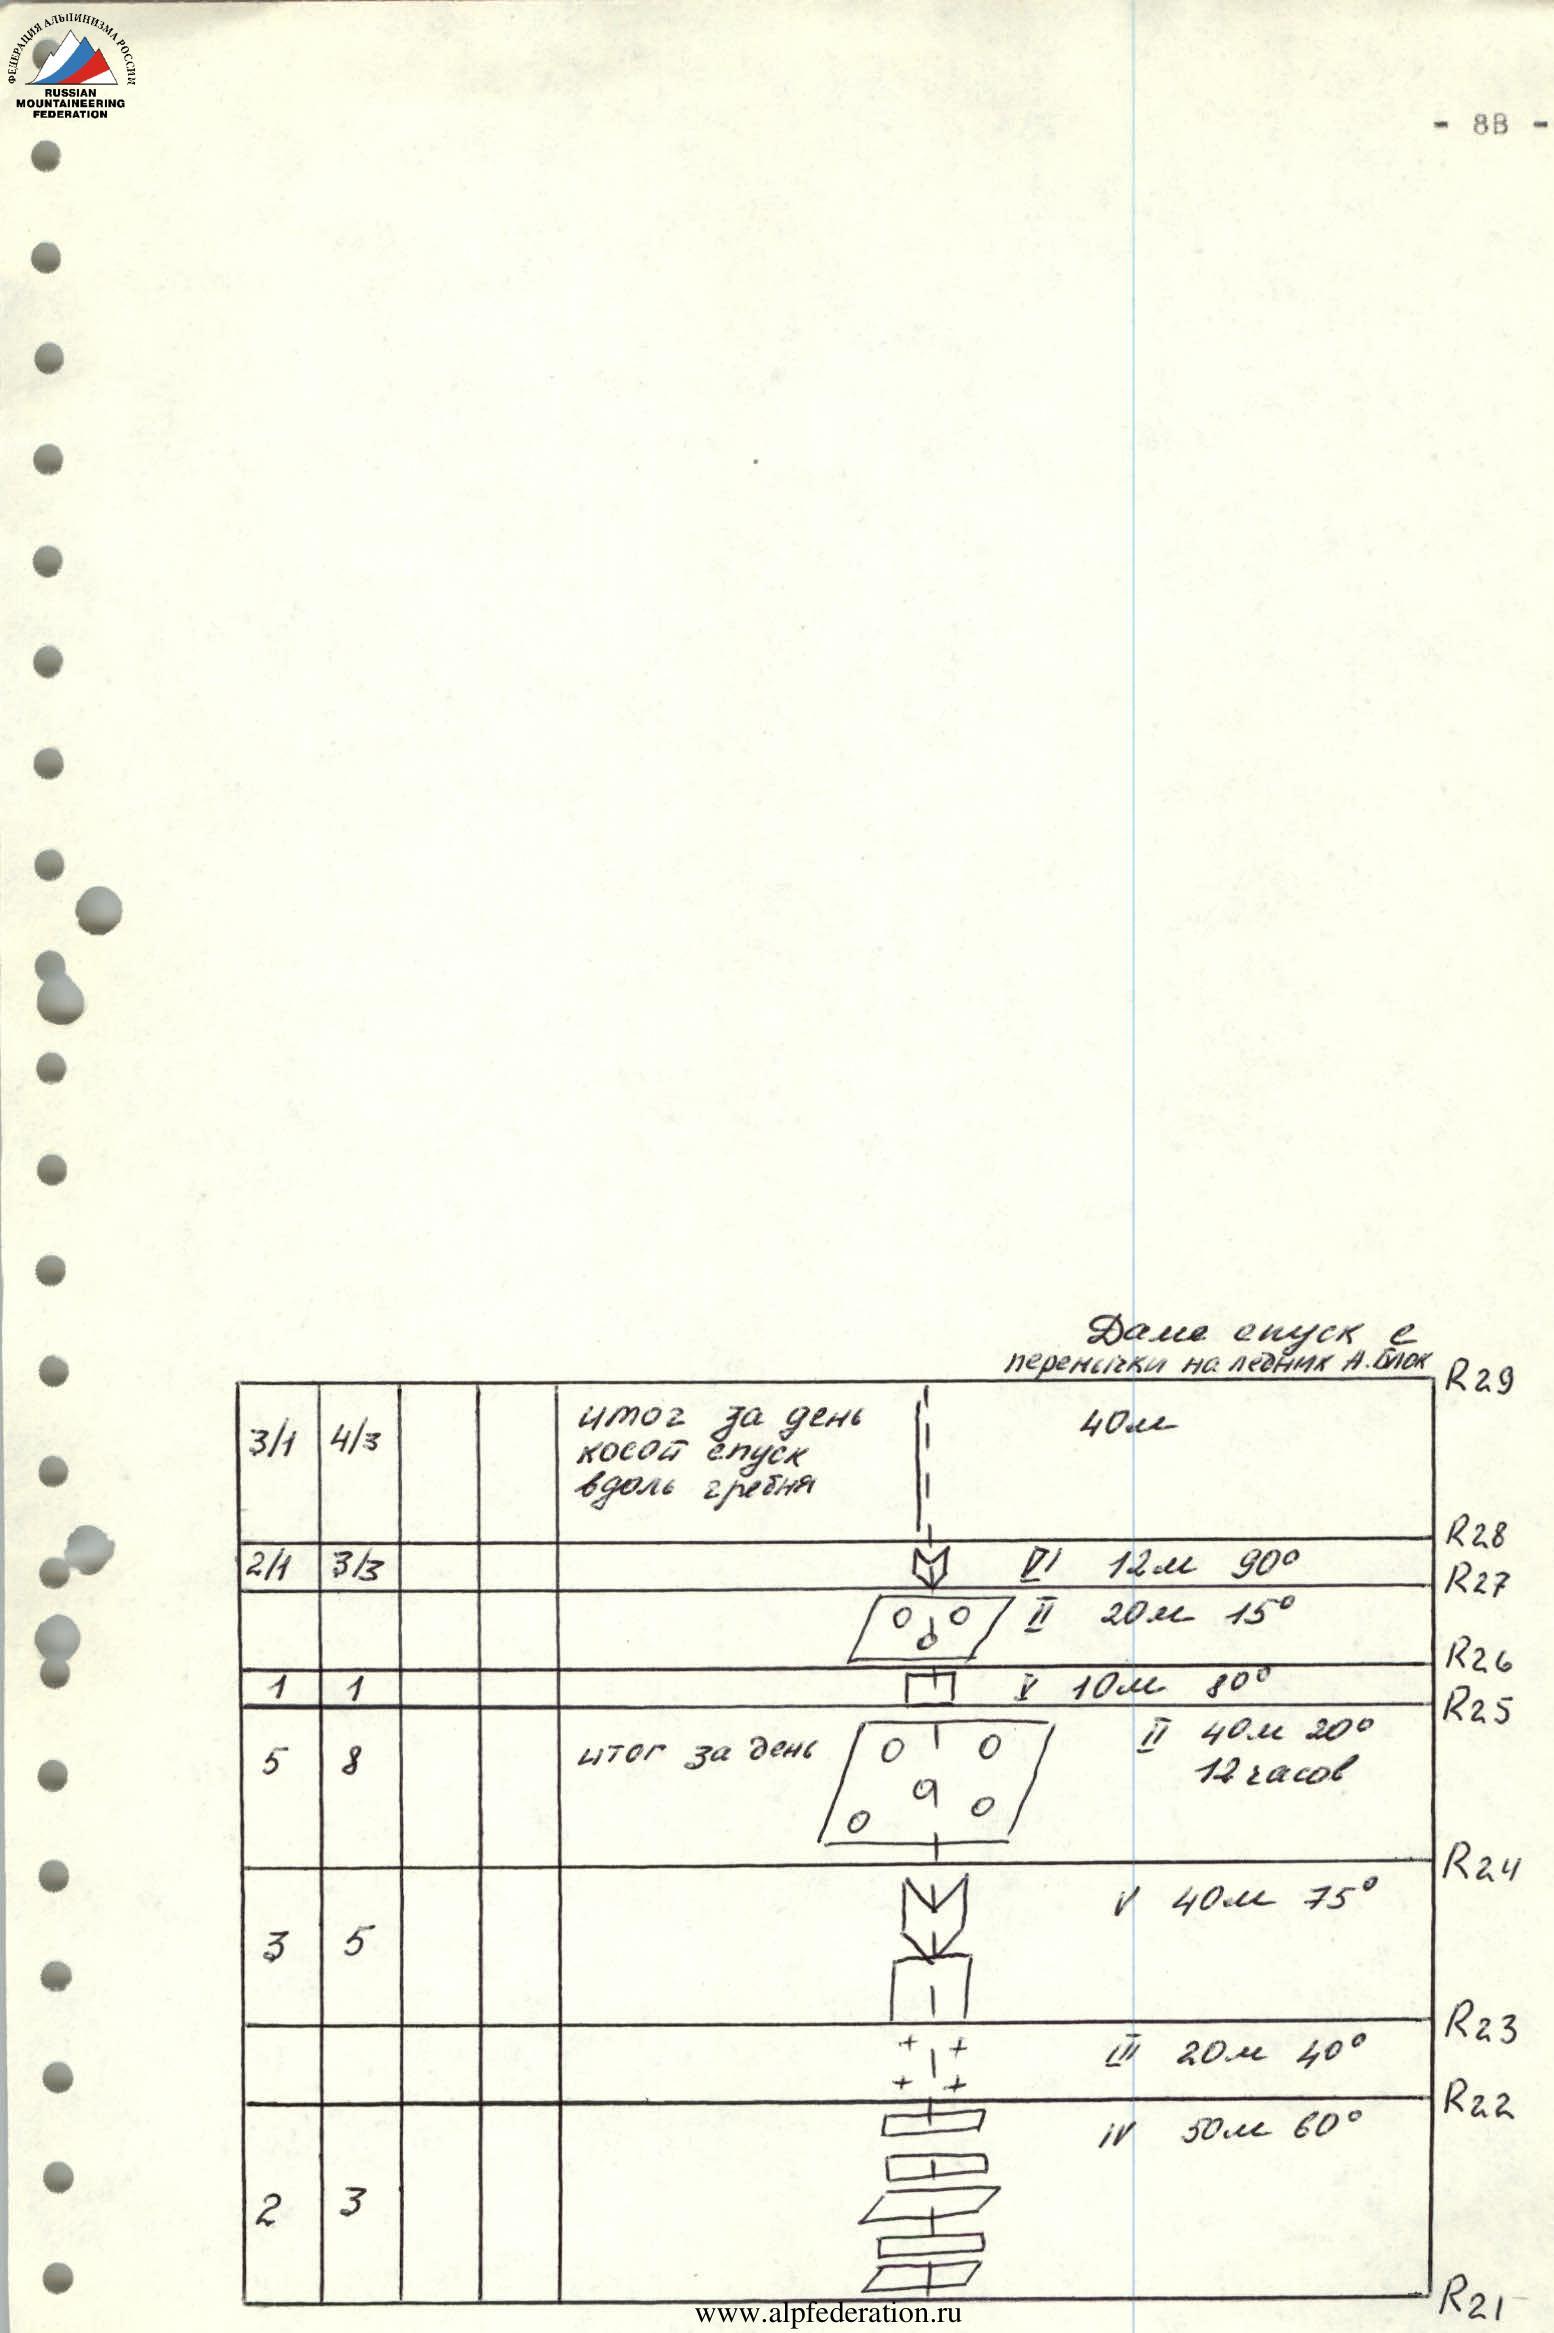 ФЕДЕРАЦИЯ АЛЬПИНИЗМА РОССИИ
RUSSIAN
MOUNTAINEERING
FEDERATION
- 8В -
Далее спуск с
перемычки на ледник А.Блок
R29
3/1 4/3 итог за день 40м
косой спуск
вдоль гребня
R28
2/1 3/3 VI 12м 90°
R27
II 20м 15°
R26
1 1 V 10м 80°
R25
5 8 итог за день II 40м 20°
12 часов
R24
3 5 V 40м 75°
R23
III 20м 40°
R22
2 3 IV 50м 60°
R21
www.alpfederation.ru